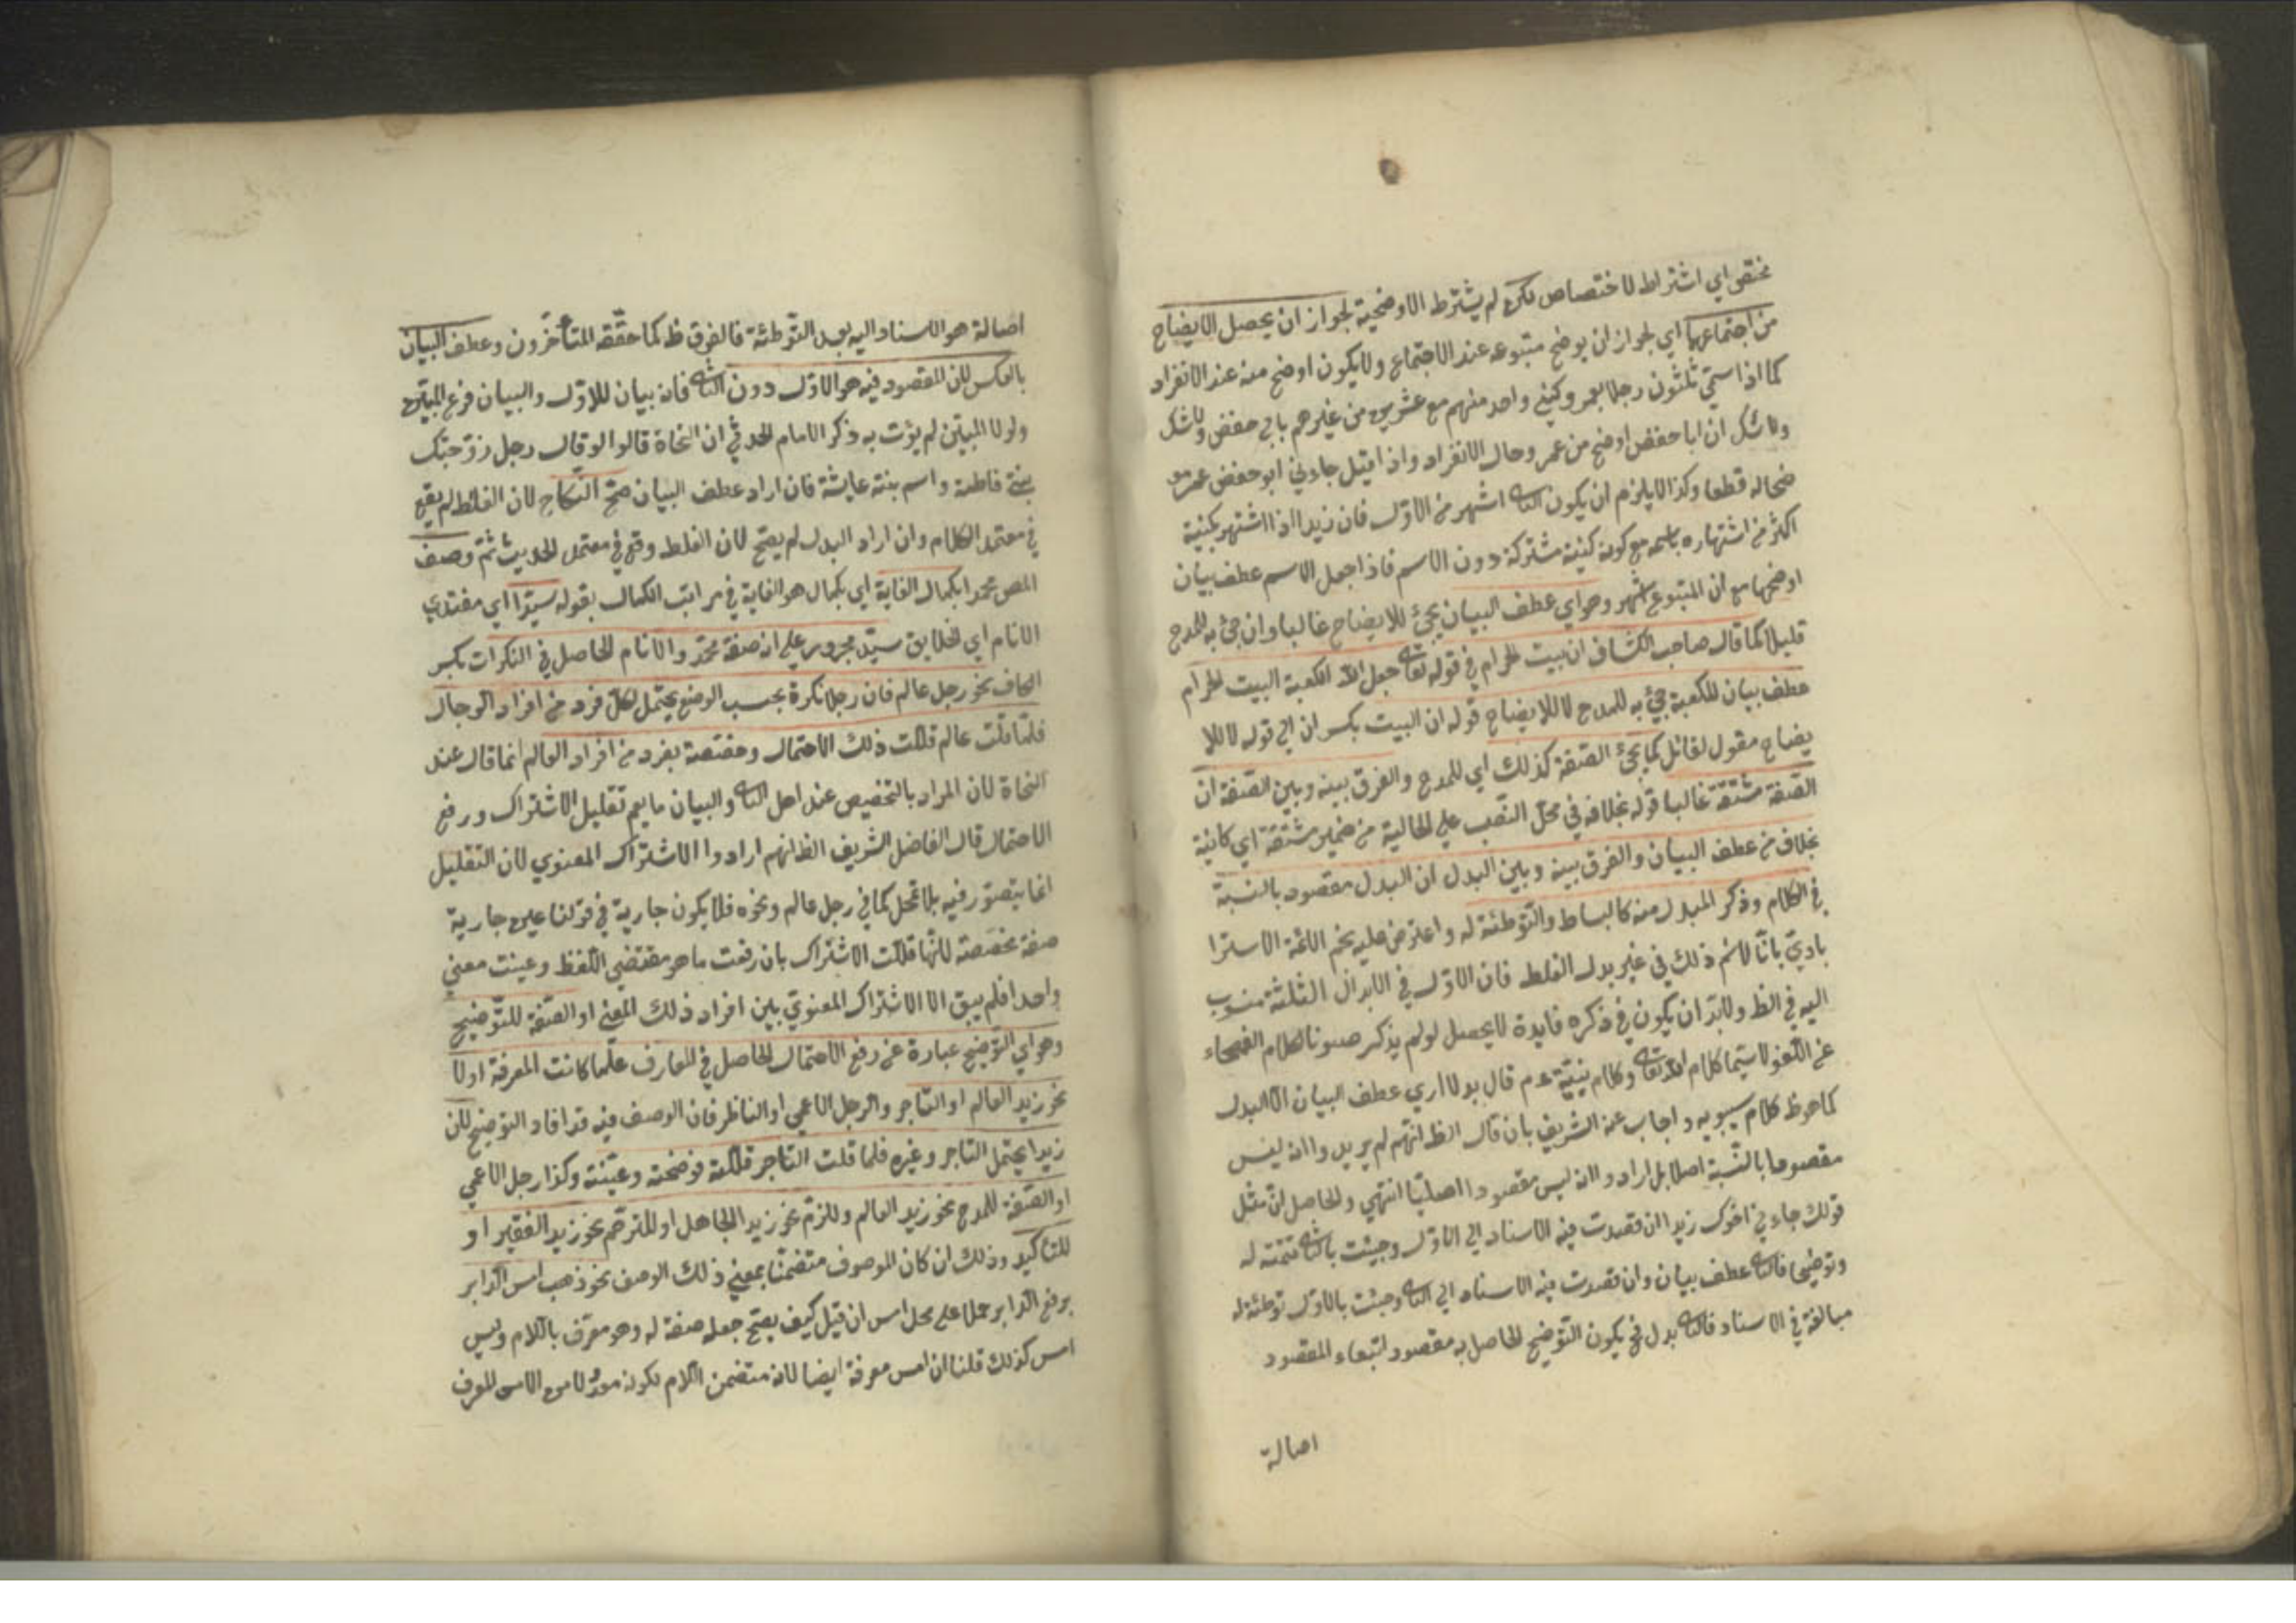 مختص اي اشتراط الاختصاص لكن لم يشترط الاوضحية لجواز ان يحصل الايضاح
من اجتماعهما اي لجواز ان يوضح متبوعه عند الاجتماع ولا يكون اوضح منه عند الانفراد
كما اذا سمّي ثلثون رجلا بعمر وكني واحد منهم مع عشرين من غيرهم بابي حفص ولا شك
ولا شك ان ابا حفص اوضح من عمر وحال الانفراد واذا قيل جاءني ابو حفص عمر
ضحاله قطعا وكذا لا يلزم ان يكون الثا اشهر من الاوّل فان زيدا اذا اشتهر بكنية
اكثر من اشتهاره باسمه مع كونه كنية مشتركة دون الاسم فاذا جعل الاسم عطف بيان
اوضحها مع ان المتبوع اشهر وهو اي عطف البيان يجئ للايضاح غالبا وان جئ به للمدح
قليلا كما قال صاحب الكشاف ان بيت الحرام في قوله تعا جعل الله الكعبة البيت الحرام
عطف بيان للكعبة جئ به للمدح لا للايضاح قوله ان البيت بكسر ان الي قوله لا للا
يضاح مقول لقائل كما يجئ الصّفة كذلك اي للمدح والفرق بينه وبين الصّفة ان
الصّفة مشتقة غالبا قوله بخلافه في محلّ النّصب علي الحالية من ضمير مشتقة اي كائنة
بخلاف من عطف البيان والفرق بينه وبين البدل ان البدل مقصود بالنسبة
في الكلام وذكر المبدل منه كالبساط والتّوطئة له واعترض عليه نجم الائمّة الاسترا
باديّ بانّا لا نم ذلك في غير بدل الغلط فان الاوّل في الابدال الثلثة منسوب
اليه في الظ ولا بدّ ان يكون في ذكره فايدة لا يحصل لو لم يذكر صونا لكلام الفصحاء
عن اللّغو لا سيّما كلام الله تعا وكلام نبيّه عم قال بولا اري عطف البيان الا البدل
كما هو ظ كلام سيبويه واجاب عنه الشريف بان قال الظ انّهم لم يريدوا انه ليس
مقصودا بالنّسبة اصلا بل ارادوا انه ليس مقصودا اصليّا انتهي والحاصل انّ مثل
قولك جاءني اخوك زيد ان قصدت فيه الاسناد الي الاوّل وجئت بالثا تتمّة له
وتوضيحا فالثا عطف بيان وان قصدت فيه الاسناد الي الثا وجئت بالاوّل توطئة له
مبالغة في الاسناد فالثا بدل فح يكون التّوضيح الحاصل به مقصود اتبعاء المقصود
اصالة
اصالة هو الاسناد اليه بعد التّوطئة فالفرق ظ كما حقّقه المتأخّرون وعطف البيان
بالعكس لان المقصود فيه هو الاوّل دون الثا فانه بيان للاوّل والبيان فرع المبيّن
ولولا المبيّن لم يؤت به ذكر الامام الحدثي ان النحاة قالوا لو قال رجل زوّجتك
بنتي فاطمة واسم بنته عايشة فان اراد عطف البيان صحّ النّكاح لان الغلط لم يقع
في معتمد الكلام وان اراد البدل لم يصحّ لان الغلط وقع في معتمد الحديث ثمّ وصف
المص محمدا بكمال الغاية اي بكمال هو الغاية في مراتب الكمال بقوله سيّدا اي مقتدي
الانام اي الخلايق سيّد مجرور علي انه صفة محمّد والانام الحاصل في النكرات بكسر
الحاف نحو رجل عالم فان رجلا نكرة بحسب الوضع يحتمل لكلّ فرد من افراد الرّجال
فلمّا قلت عالم قلّلت ذلك الاحتمال وخصّصته بفرد من افراد العالم انما قال عند
النحاة لان المراد بالتّخصيص عند اهل الثا والبيان ما يعم تقليل الاشتراك ورفع
الاحتمال قال الفاضل الشريف الظ انهم ارادوا الاشتراك المعنوي لان التقليل
انما يتصوّر فيه بلا تمحل كما في رجل عالم ونحوه فلا يكون جارية في قولنا عين جارية
صفة مخصّصة لانّها قلّلت الاشتراك بان رفعت ما هو مقتضي اللّفظ وعيّنت معني
واحدا فلم يبق الا الاشتراك المعنويّ بين افراد ذلك المعني او الصّفة للتّوضيح
وهو اي التّوضيح عبارة عن رفع الاحتمال الحاصل في المعارف علما كانت المعرفة اولا
نحو زيد العالم او التّاجر والرجل الاعمي او الناظر فان الوصف فيه قد افاد التوضيح لان
زيدا يحتمل التاجر وغيره فلما قلت التاجر قلّلته فوضحته وعيّنته وكذا رجل الاعمي
او الصّفة للمدح نحو زيد العالم وللذمّ نحو زيد الجاهل او للترحّم نحو زيد الفقير او
للتأكيد وذلك ان كان الموصوف متضمّنا بمعني ذلك الوصف نحو ذهب امس الدّابر
برفع الدّابر حملا علي محل امس ان قيل كيف يصحّ جعله صفة له وهو معرّف باللّام وليس
امس كذلك قلنا ان امس معرفة ايضا لانه متضمن اللّام لكونه معدولا من الامس المعرف